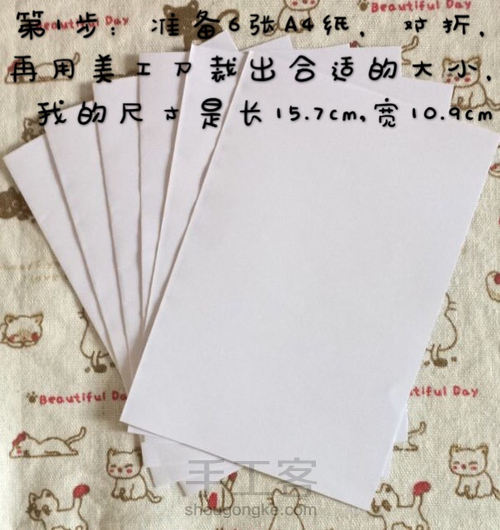 第1步：准备6张A4纸，对折，
再用美工刀裁出合适的大小，
我的尺寸是长15.7cm,宽10.9cm
Beautiful Day
Beautiful Day
Beautiful Day
手工客
shougongke.com